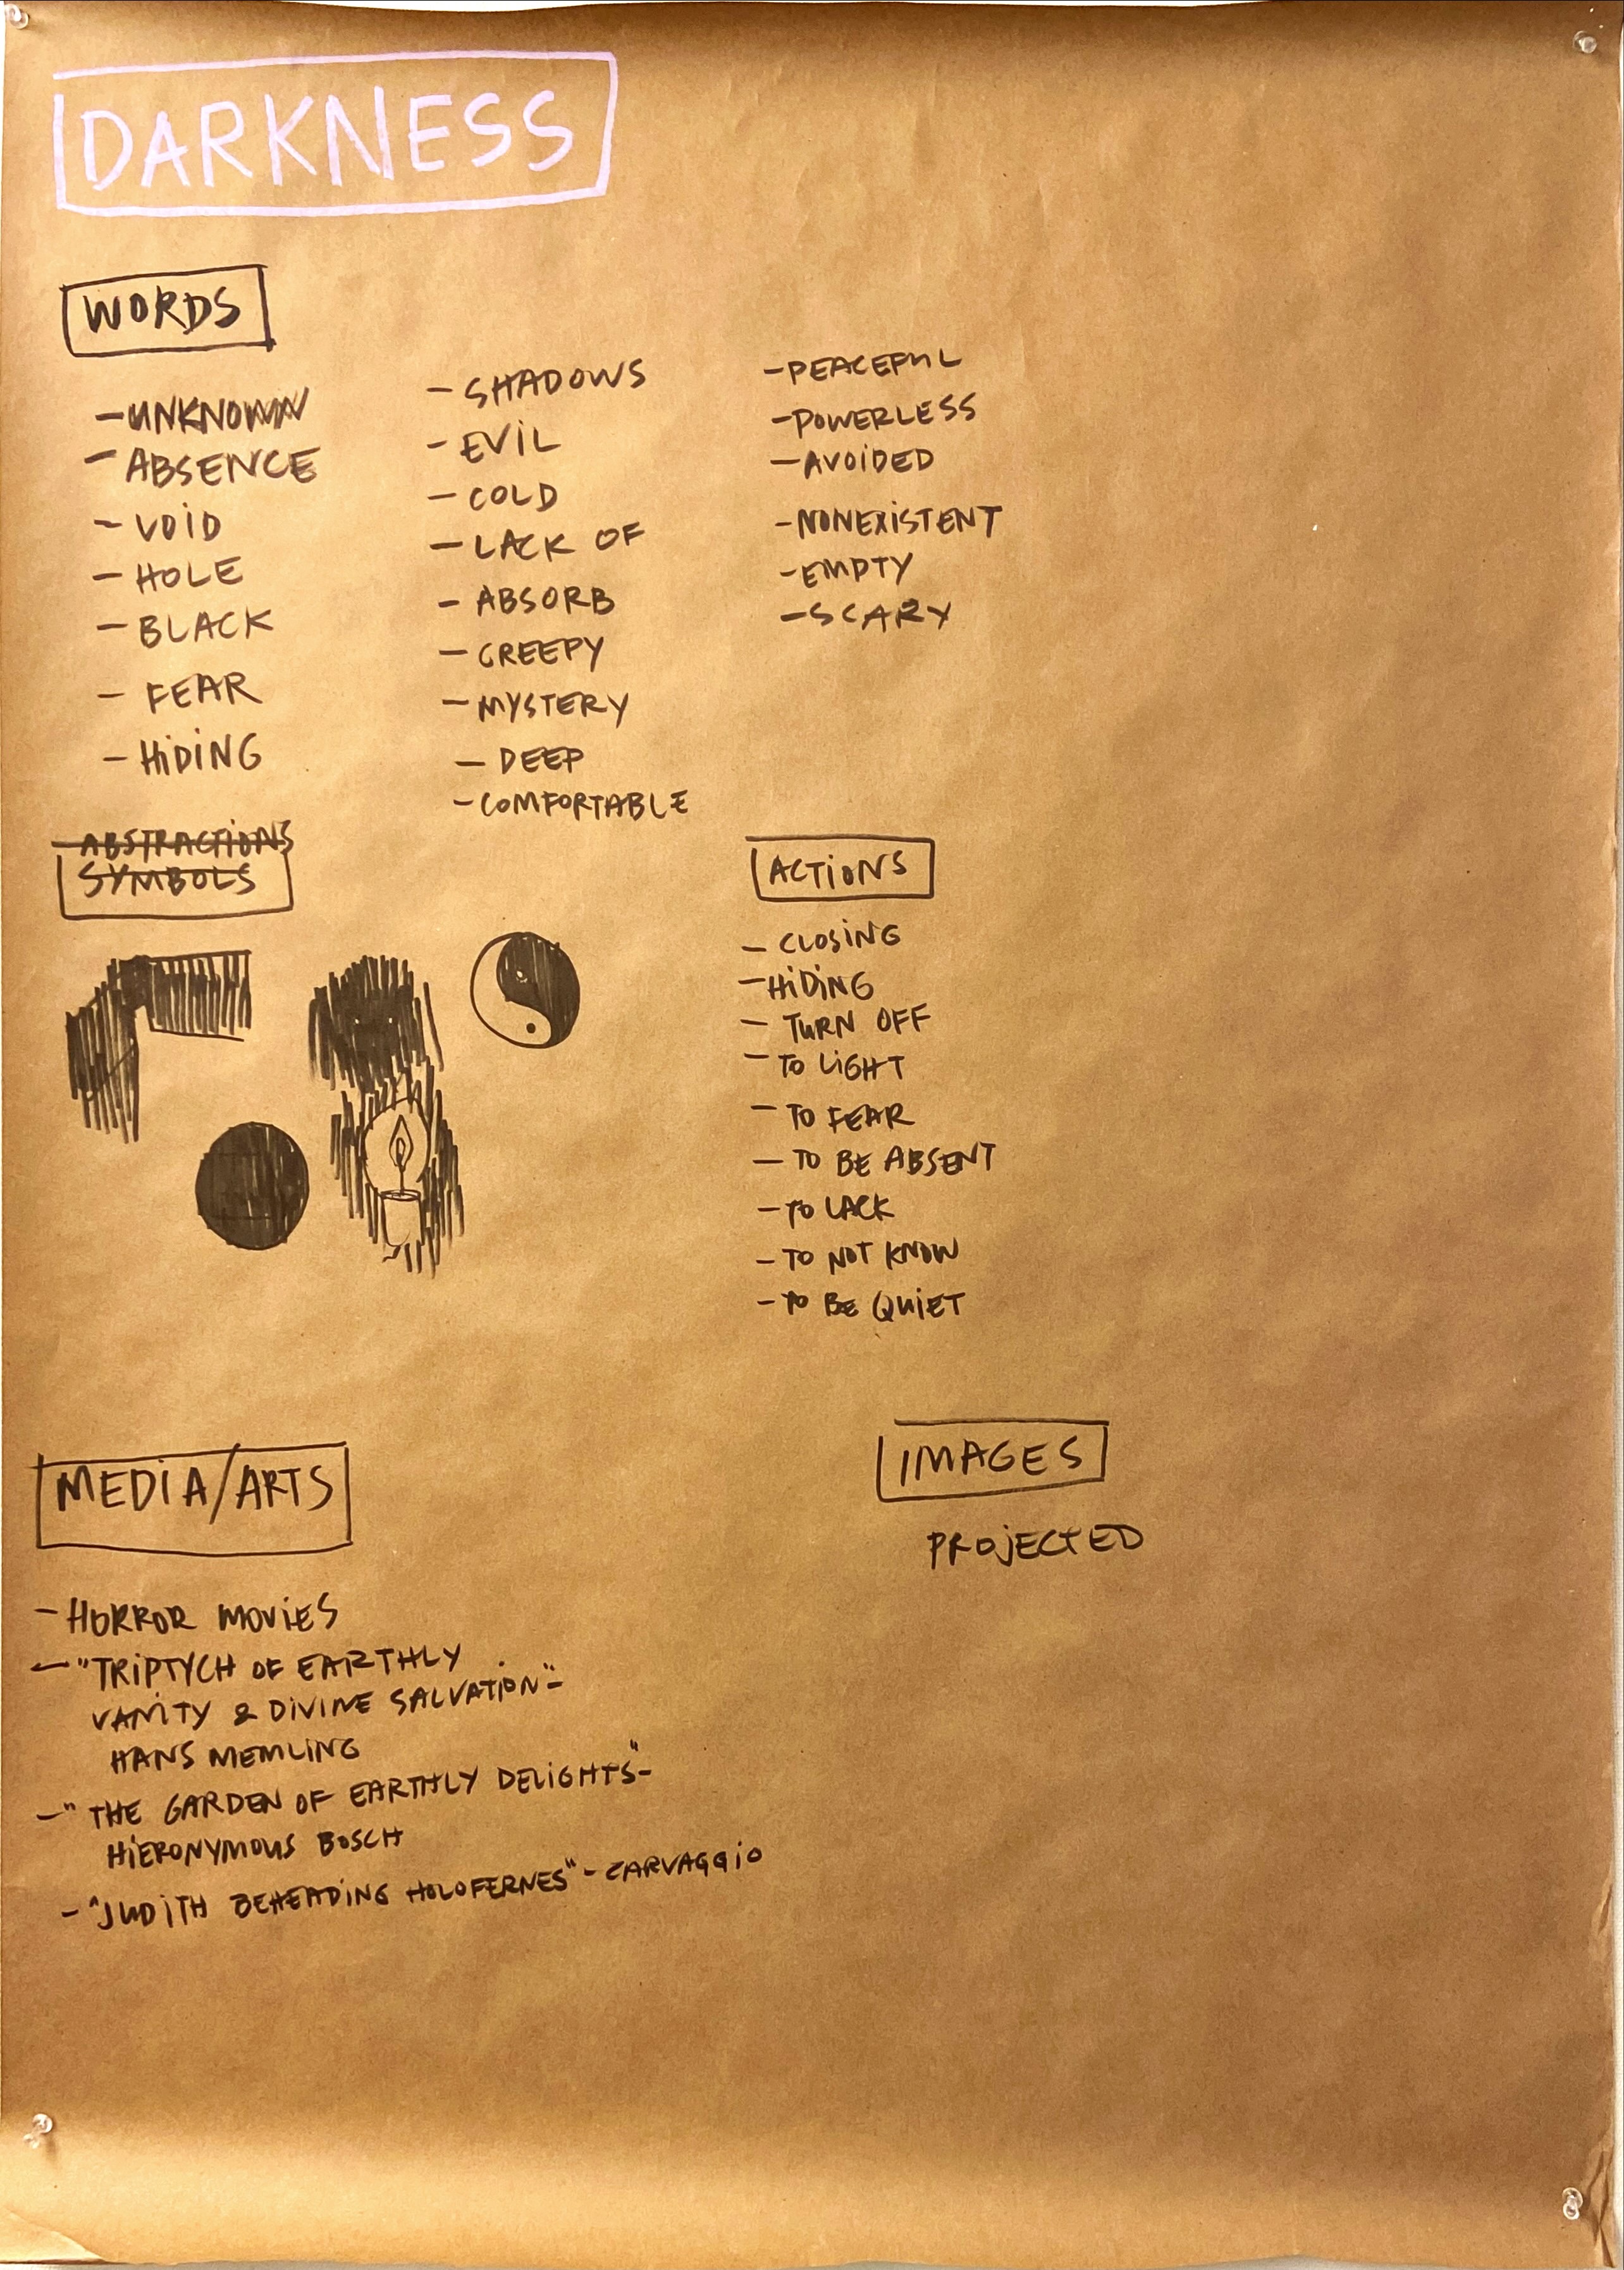 DARKNESS
WORDS
- UNKNOWN
- ABSENCE
- VOID
- HOLE
- BLACK
- FEAR
- HIDING
- SHADOWS
- EVIL
- COLD
- LACK OF
- ABSORB
- CREEPY
- MYSTERY
- DEEP
- COMFORTABLE
- PEACEFUL
- POWERLESS
- AVOIDED
- NONEXISTENT
- EMPTY
- SCARY
- ABSTRACTIONS
SYMBOLS
ACTIONS
- CLOSING
- HIDING
- TURN OFF
- TO LIGHT
- TO FEAR
- TO BE ABSENT
- TO LACK
- TO NOT KNOW
- TO BE QUIET
MEDIA/ARTS
- HORROR MOVIES
- "TRIPTYCH OF EARTHLY
VANITY & DIVINE SALVATION" -
HANS MEMLING
- "THE GARDEN OF EARTHLY DELIGHTS" -
HIERONYMOUS BOSCH
- "JUDITH BEHEADING HOLOFERNES" - CARVAGGIO
IMAGES
PROJECTED